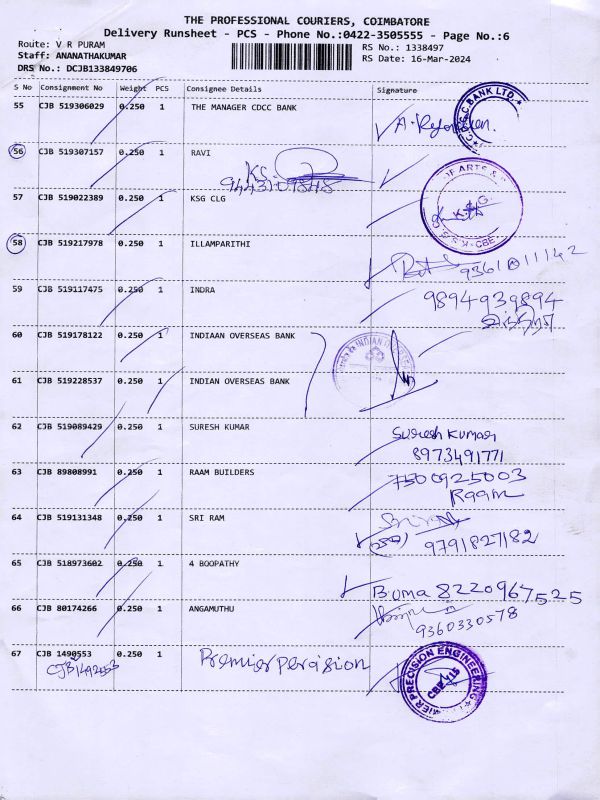 THE PROFESSIONAL COURIERS, COIMBATORE
Delivery Runsheet - PCS - Phone No.:0422-3505555 - Page No.:6
Route: V R PURAM
RS No.: 1338497
Staff: ANANATHAKUMAR
RS Date: 16-Mar-2024
DRS No.: DCJB133849706
S No Consignment No Weight PCS Consignee Details Signature
55 CJB 519306029 0.250 1 THE MANAGER CDCC BANK
C BANK LTD.
56 CJB 519307157 0.250 1 RAVI
9443109848
OF ARTS &
57 CJB 519022389 0.250 1 KSG CLG
CBE
58 CJB 519217978 0.250 1 ILLAMPARITHI
9361011142
59 CJB 519117475 0.250 1 INDRA
9894939894
60 CJB 519178122 0.250 1 INDIAAN OVERSEAS BANK
INDIAN
61 CJB 519228537 0.250 1 INDIAN OVERSEAS BANK
62 CJB 519089429 0.250 1 SURESH KUMAR
Suresh Kumar
8973491771
63 CJB 89808991 0.250 1 RAAM BUILDERS
7500925003
Raam
64 CJB 519131348 0.250 1 SRI RAM
9791827182
65 CJB 518973602 0.250 1 4 BOOPATHY
Buma 8220967525
66 CJB 80174266 0.250 1 ANGAMUTHU
9360330578
67 CJB 1490553 0.250 1 Premier percision
CJB 1492553
MIER PRECISION ENGINEERING
CBE-15